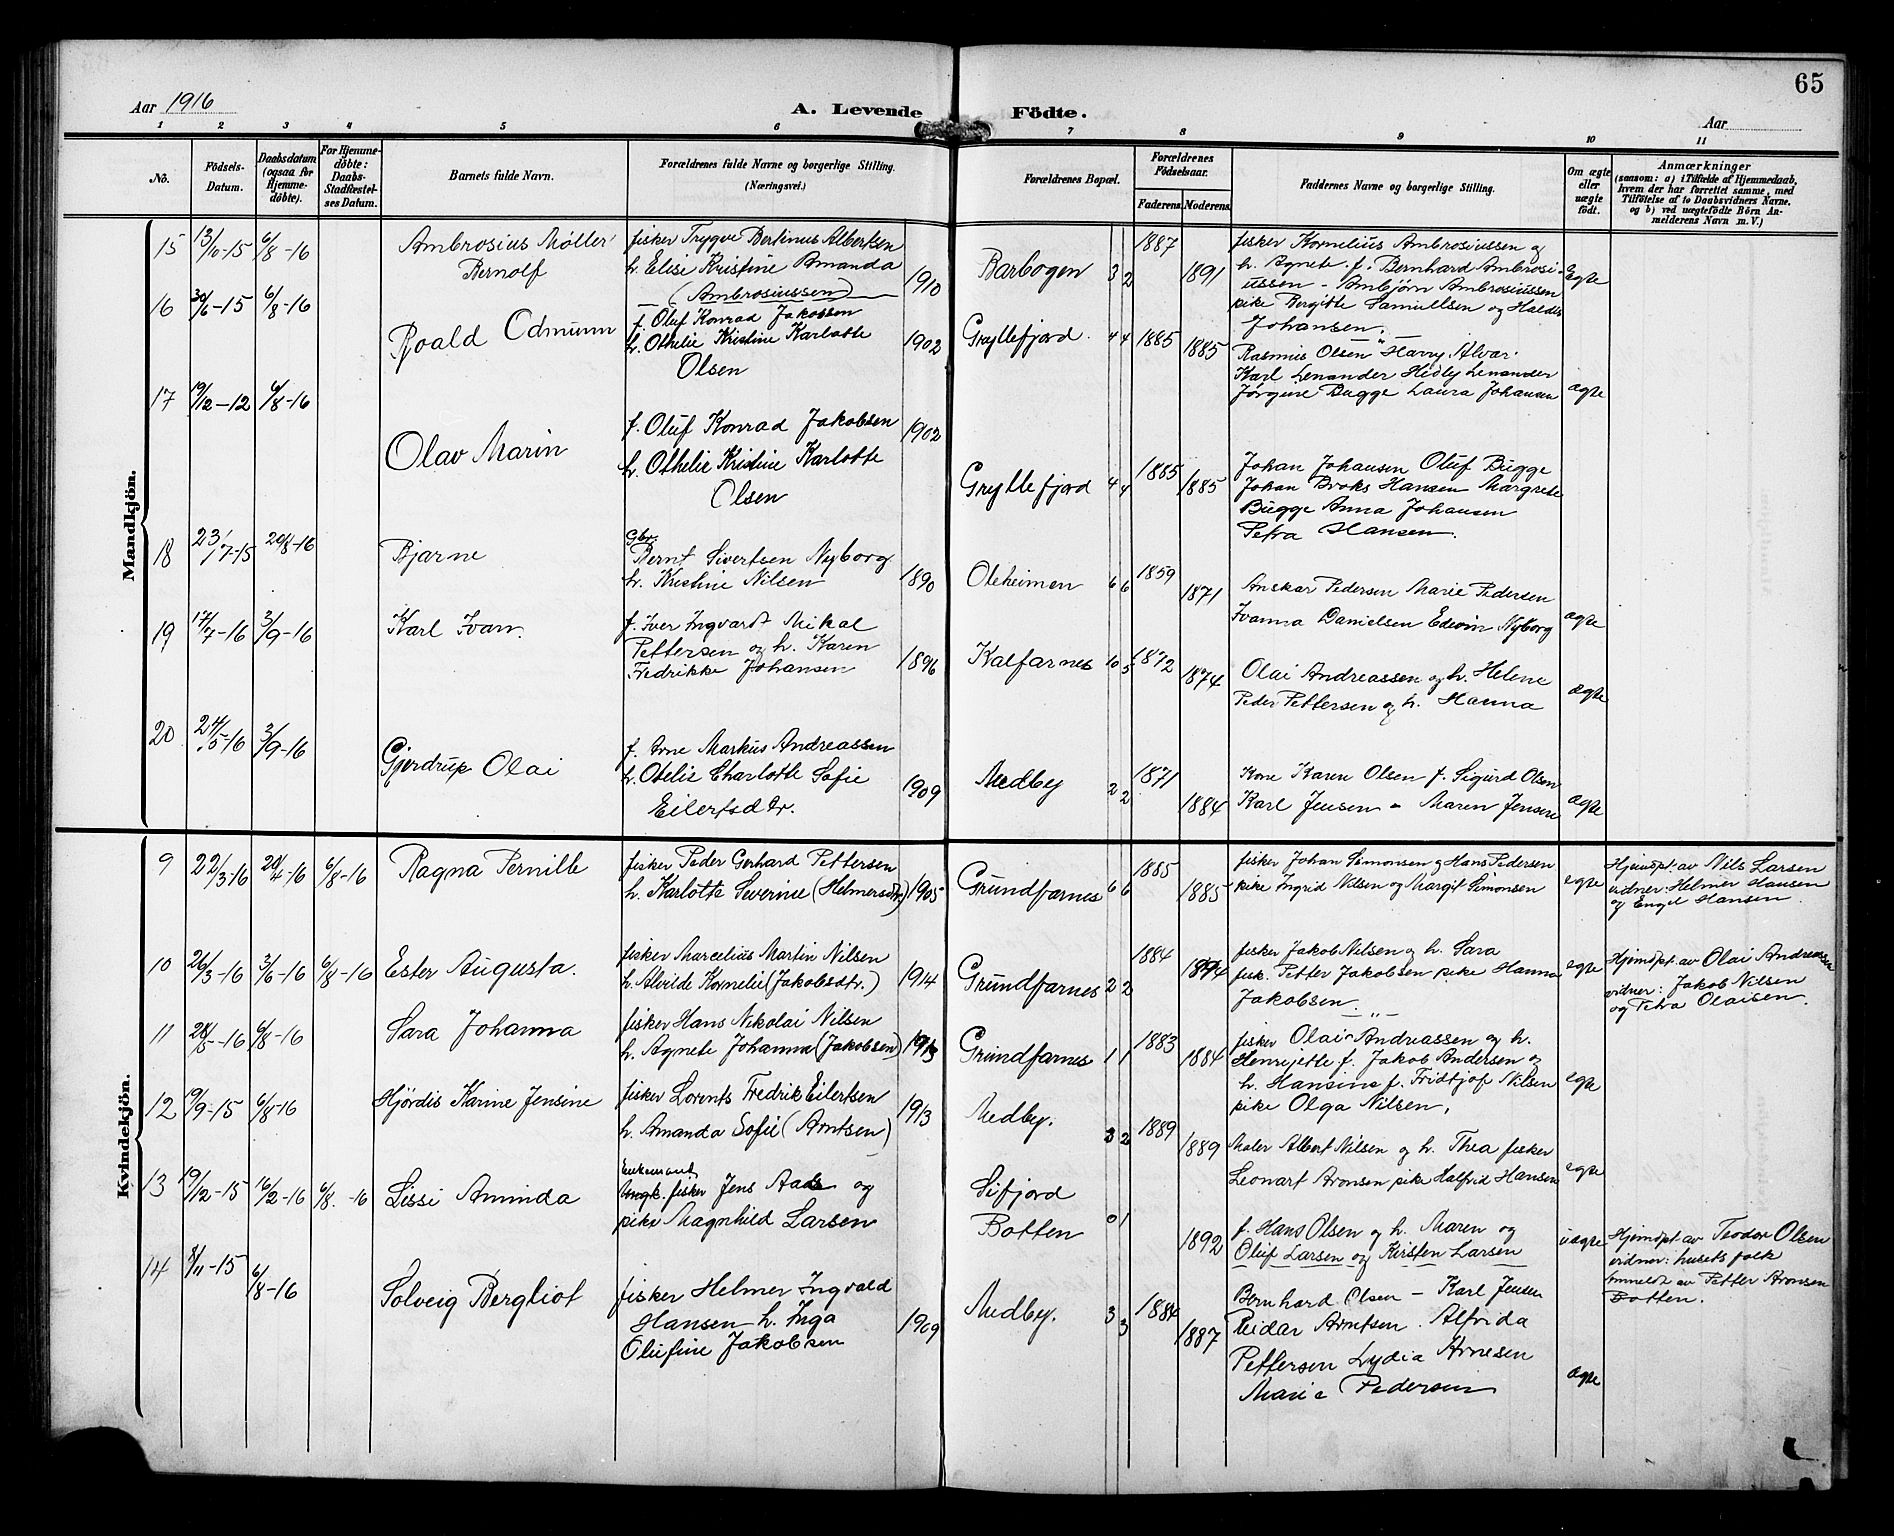 65
Aar 1916
A. Levende Födte.
Aar
1 2 3 4 5 6 7 8 9 10 11
No.
Födsels-Datum.
Daabsdatum (ogsaa for Hjemme-døbte).
For Hjemme-døbte: Daabs-Stadfæstel-ses Datum.
Barnets fulde Navn.
Forældrenes fulde Navne og borgerlige Stilling.
(Næringsvei.)
Forældrenes Bopæl.
Forældrenes Fødselsaar.
Faderens. Moderens.
Faddernes Navne og borgerlige Stilling.
Om ægte eller uægte født.
Anmærkninger
(saasom: a) i Tilfælde af Hjemmedaab,
hvem der har forrettet samme, med
Tilføielse af to Daabsvidners Navne.
og b) ved uægtefödte Börn An-
melderens Navn m. V.)
Mandkjön.
15 13/11-15 6/8-16
Ambrosius Møller
Bernolf
fisker Trygve Bertinus Albertsen
h. Elise Kristine Amanda
(Ambrosiussen)
1910
Barbogen 3 2
1887 1891
fisker Kornelius Ambrosiussen og
h. Agnete. f. Bernhard Ambrosi-
ussen - Ambjørn Ambrosiussen
pike Bergitte Samuelsen og Haldis
Johansen.
egte
16 30/6-15 6/8-16
Roald Edmunn
f. Oluf Konrad Jakobsen
h. Othelie Kristine Karlotte
Olsen
1902
Gryllefjord. 4 4
1885 1885
Rasmus Olsen Harry Alvar.
Karl Lenander Hedly Lenander
Jørgine Bugge Laura Johansen
ægte
17 19/12-12 6/8-16
Olav Marin
f. Oluf Konrad Jakobsen
h. Othelie Kristine Karlotte
Olsen
1902
Gryllefjord 4 4
1885 1885
Johan Johansen Oluf Bugge
Johan Broks Hansen Margrete
Bugge Anna Johansen
Petra Hansen.
18 23/7-15 20/8-16
Bjarne
Gbr.
Bernt Sivertsen Nyborg
h. Kristine Nilsen
1890
Oleheimen 6 6
1859 1871
Anskar Pedersen Marie Pedersen
Ivanna Danielsen Edevin Nyborg
ægte
19 17/7-16 3/9-16
Karl Ivan.
f. Iver Ingvart Mikal
Pettersen og h. Karen
Fredrikke Johansen
1896
Kalfarnes 10 5
1872 1874
Olai Andreassen og h. Helene
Peder Pettersen og h. Hanna
ægte
20 24/5-16 3/9-16
Gjerdrup Olai
f. Arne Markus Andreassen
h. Otelie Charlotte Sofie
Eilertsdtr.
1909
Medby 2 2
1871 1884
Kone Karen Olsen f. Sigurd Olsen
Karl Jensen - Maren Jensen
ægte
Kvindekjön.
9 22/3-16 20/4-16 6/8-16
Ragna Pernille
fisker Peder Gerhard Pettersen
h. Karlotte Severine (Helmersdtr.)
1905
Grundfarnes 6 6
1885 1885
fisker Johan Simonsen og Hans Pedersen
pike Ingrid Nilsen og Margit Simonsen
egte
Hjemdpt. av Nils Larsen
vidner: Helmer Hansen
og Engel Hansen.
10 26/3-16 3/6-16 6/8-16
Ester Augusta.
fisker Marcelius Martin Nilsen
h. Alvilde Kornelie (Jakobsdtr.)
1914
Grundfarnes 2 2
1884 1894
fisker Jakob Nilsen og h. Sara
fisk. Petter Jakobsen pike Hanna
Jakobsen.
egte
Hjemdpt av Olai Andreassen
vidner: Jakob Nilsen
og Petra Olaisen.
11 28/5-16 6/8-16
Sara Johanna
fisker Hans Nikolai Nilsen
h. Agnete Johanna (Jakobsen)
1913
Grundfarnes 1 1
1883 1884
fisker Olai Andreassen og h.
Henriette f. Jakob Andersen og
h. Hansine f. Fridtjof Nilsen
pike Olga Nilsen.
egte
12 19/9-15 6/8-16
Hjördis Karine Jensine
fisker Lorents Fredrik Eilertsen
h. Amanda Sofie (Arntsen)
1913
Medby. 3 2
1889 1889
Maler Albert Nilsen og h. Thea fisker
Leonart Aronsen pike Halfrid Hansen
egte
13 19/12-15 16/2-16 6/8.-16
Lissi Aminda
Enkemand
Ungk. fisker Jens Aads og
pike Magnhild Larsen
Sifjord
Botten 0 1
1892
f. Hans Olsen og h. Maren og
Oluf Larsen og Kirsten Larsen
uægte
Hjemdpt av Teodor Olsen
vidner: husets folk
Anmeldt av Petter Aronsen
Botten.
14 8/11-15 6/8-16
Solveig Bergliot
fisker Helmer Ingvald
Hansen h. Inga
Olufine Jakobsen
1909
Medby. 3 3
1884 1887
Bernhard Olsen - Karl Jensen
Reidar Arntsen. Alfrida
Pettersen Lydia Arnesen
Marie Pedersen
ægte